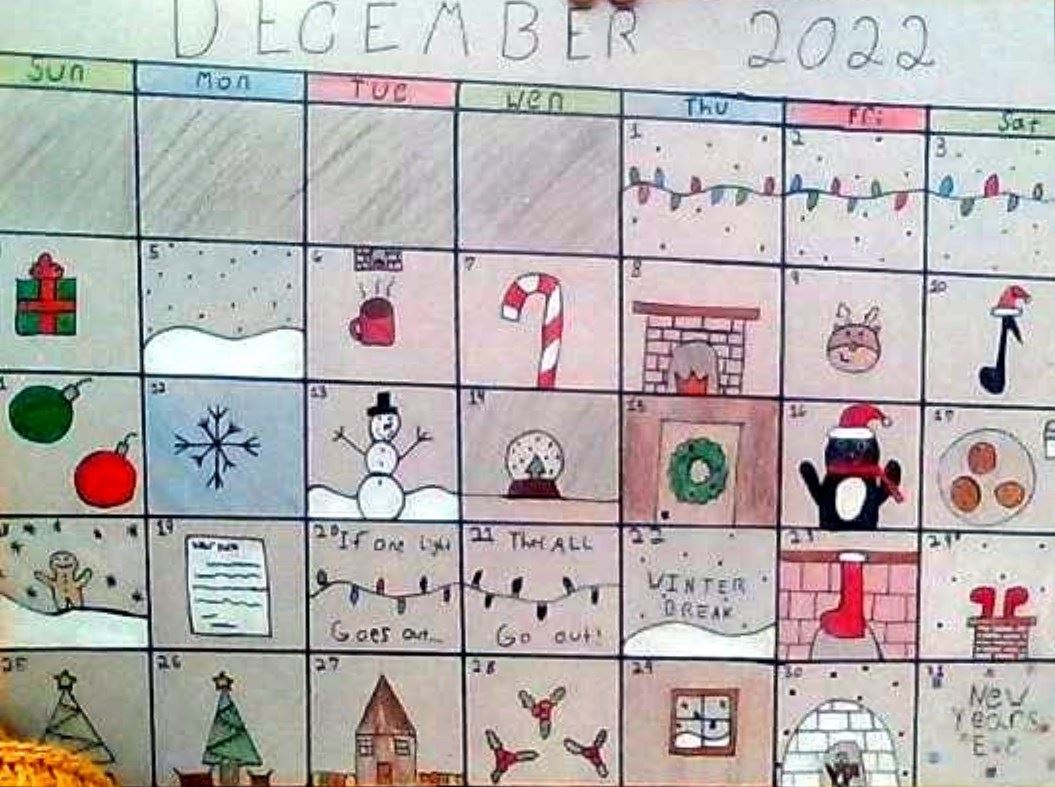 DECEMBER 2022
Sun Mon Tue Wen Thu Fri Sat
1 2 3
5 6 7 8 9 10
12 13 14 15 16 17
19 20 21 22 23 24
If one light That ALL WINTER
Goes out... Go out! BREAK
25 26 27 28 29 30 31
New
Years
Eve